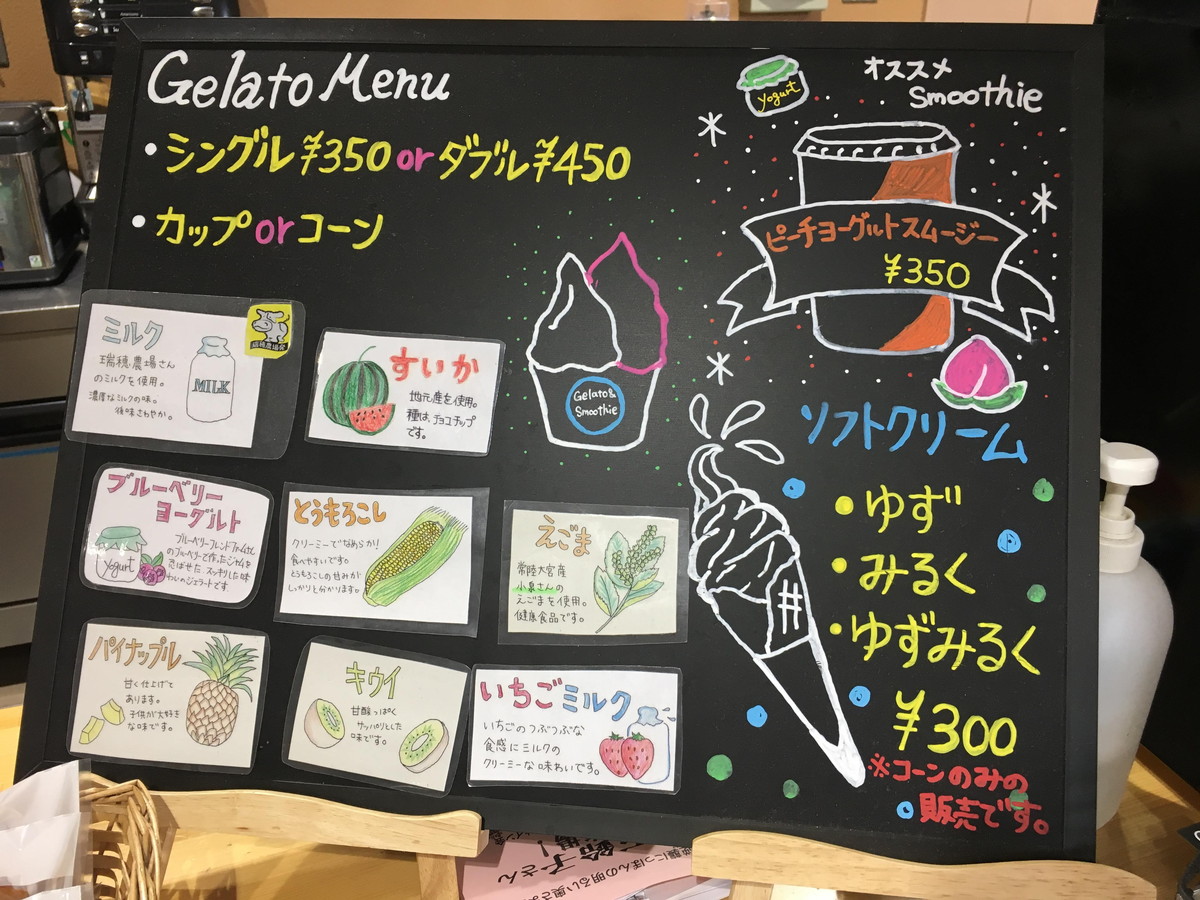 Gelato Menu
・シングル ¥350 or ダブル ¥450
・カップ or コーン
Gelato&
Smoothie
ミルク
瑞穂農場さん
のミルクを使用。
濃厚なミルクの味。
後味さわやか。
MILK
すいか
地元産を使用。
種は、チョコチップ
です。
ブルーベリー
ヨーグルト
ブルーベリーフレンドファームさん
のブルーベリーで作ったジャムを
Yogurt
とうもろこし
クリーミーでなめらか!
食べやすいです。
とうもろこしの甘みが
しっかりと分かります。
えごま
常陸大宮産
小泉さんの
えごまを使用。
健康食品です。
パイナップル
甘く仕上げて
あります。
子供が大好き
な味です。
キウイ
甘酸っぱく
サッパリとした
味です。
いちごミルク
いちごのつぶつぶな
食感にミルクの
クリーミーな味わいです。
オススメ
Smoothie
Yogurt
ピーチヨーグルトスムージー
¥350
ソフトクリーム
・ゆず
・みるく
・ゆずみるく
¥300
※コーンのみの
販売です。